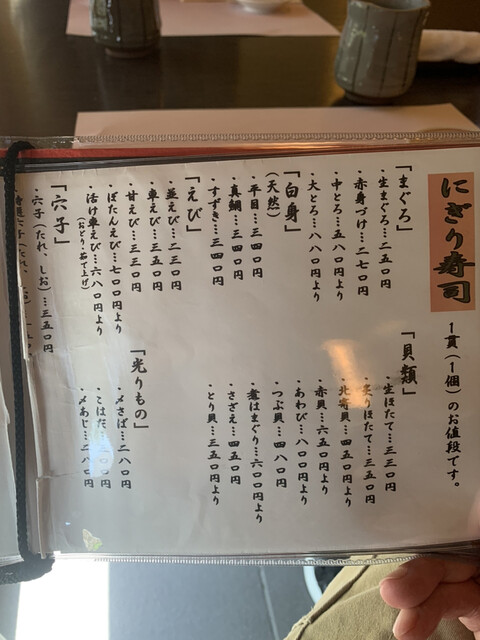 にぎり寿司
1貫(1個)のお値段です。
「まぐろ」
・生まぐろ…二五〇円
・赤身づけ…二七〇円
・中とろ…五八〇円より
・大とろ…八八〇円より
「白身」
(天然)
・平目…三四〇円
・真鯛…三四〇円
・すずき…三四〇円
「えび」
・並えび…二三〇円
・車えび…三五〇円
・甘えび…三三〇円
・ぼたんえび…七〇〇円より
・活け車えび…六八〇円より
(おどり・茹で上げ)
「穴子」
・穴子(たれ、しお)…三五〇円
「貝類」
・生ほたて…三三〇円
りほたて…三五〇円
・北寄貝…四五〇円より
・赤貝…六五〇円より
・あわび…八〇〇円より
・つぶ貝…四八〇円
・煮はまぐり…六〇〇円より
・さざえ…四五〇円
・とり貝…三五〇円より
「光りもの」
・〆さば…二八〇円
・こはだ…〇〇円
・〆あじ…二八〇円